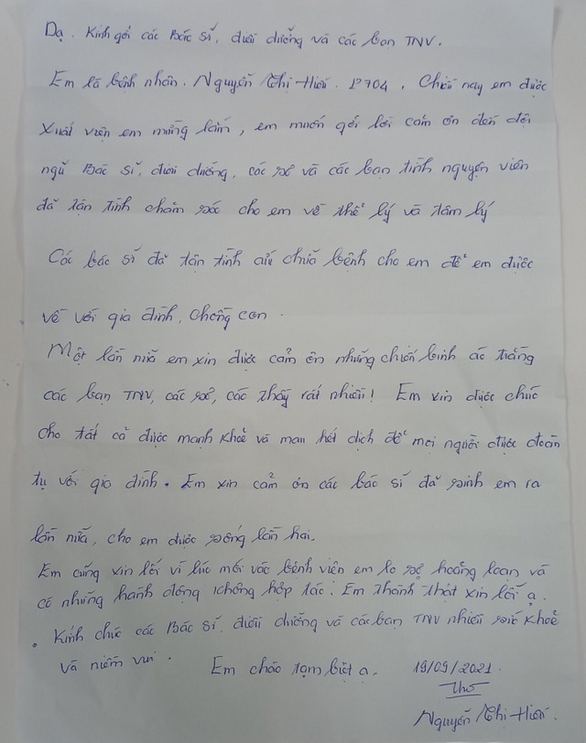 Dạ. Kính gởi các Bác sĩ, đưỡi dưỡng và các bạn TNV.
Em là bệnh nhân. Nguyễn Thị Hiền. P704. Chiều nay em được
xuất viện em mừng lắm, em muốn gởi lời cảm ơn đến đội
ngũ Bác sĩ, đưỡi dưỡng, các sơ và các bạn tình nguyện viên
đã tận tình chăm sóc cho em về thể lý và tâm lý
Các bác sĩ đã tận tình cứu chữa bệnh cho em để em được
về với gia đình, chồng con.
Một lần nữa em xin được cảm ơn những chiến binh áo trắng
các bạn TNV, các sơ, các thầy rất nhiều! Em xin được chúc
cho tất cả được mạnh khoẻ và mau hết dịch để mọi người được đoàn
tụ với gia đình. Em xin cảm ơn các bác sĩ đã sinh em ra
lần nữa, cho em được sống lần hai.
Em cũng xin lỗi vì lúc mới vào bệnh viện em lo sợ hoảng loạn và
có những hành động không hợp tác. Em thành thật xin lỗi ạ.
. Kính chúc các Bác sĩ, đưỡi dưỡng và các bạn TNV nhiều sức khoẻ
và niềm vui.
Em chào tạm biệt ạ.
19/09/2021.
Nguyễn Thị Hiền.